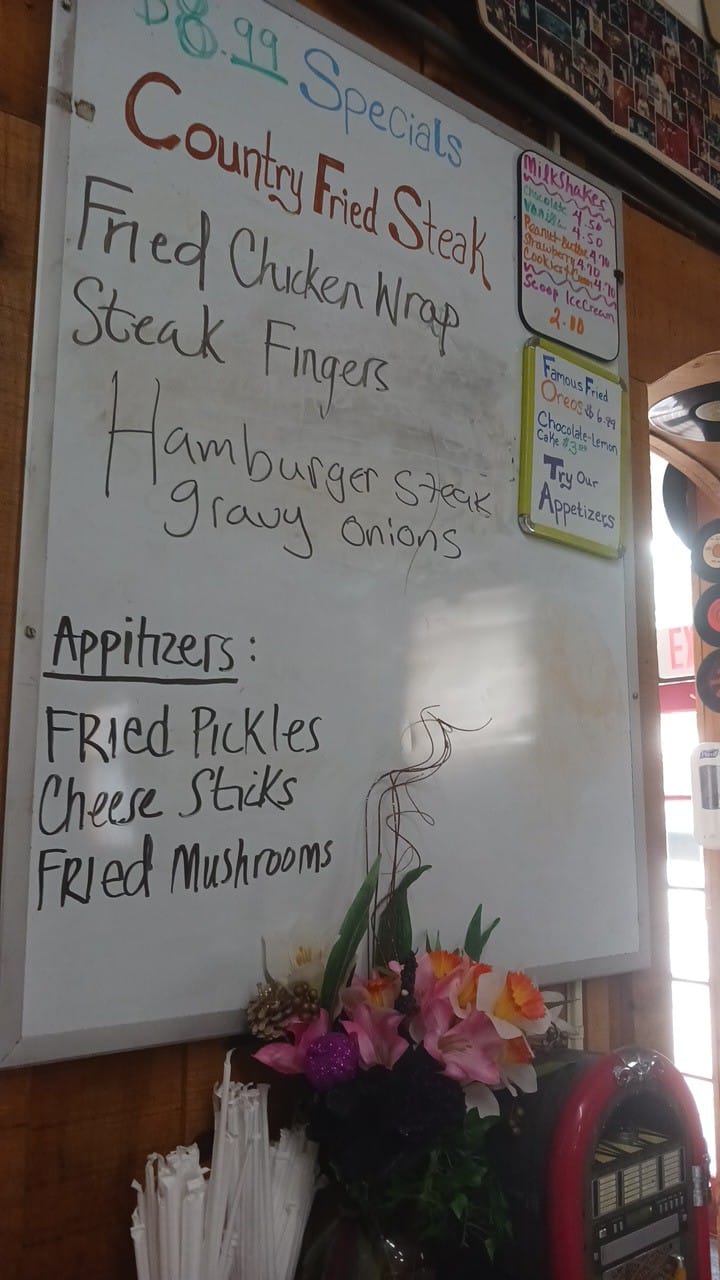 $8.99 Specials
Country Fried Steak
Fried Chicken Wrap
Steak Fingers
Hamburger Steak
gravy onions
Appitizers:
FRied Pickles
Cheese Sticks
FRied Mushrooms
Milkshakes
Chocolate 4.50
Vanilla 4.50
Peanut-Butter 4.70
Strawberry 4.70
Cookies & Cream 4.70
Scoop IceCream
2.00
Famous Fried
Oreos $6.99
Chocolate-Lemon
Cake
Try Our
Appetizers
EX